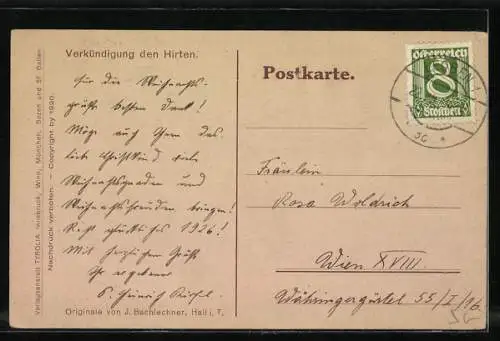 Verkündigung den Hirten.
für die Weihnachts-
grüße besten Dank!
Möge auch Ihnen das
liebe Christkind viele
Weihnachtsgnaden und
Weihnachtsfreuden bringen!
Recht 1926!
Mit herzlichem Gruß
Ihr ergebener
P. Heinrich
Originale von J. Bachlechner, Hall i. T.
Verlagsanstalt TYROLIA Innsbruck, Wien, München, Bozen und St. Gallen
Nachdruck verboten. — Copyright by 1920.
Postkarte.
Österreich
8
Groschen
Fräulein
Rosa Woldrich
Wien XVIII.
Währingergürtel 55/I/16